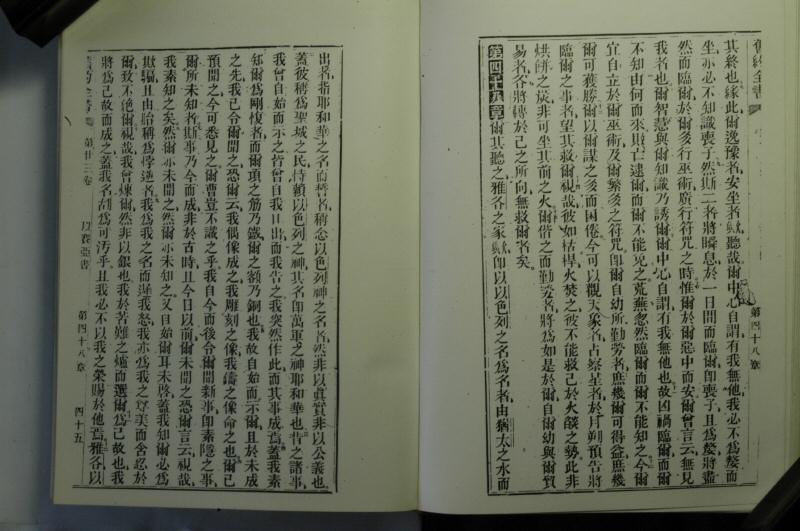 舊約全書
第四十八章
其終也緣此爾逸豫者安坐者歟聽哉爾中心自謂有我無他我必不為嫠而
坐亦必不知識喪子然斯二者將瞬息於一日間而臨爾卽喪子且為嫠將盡
然而臨爾於爾多行巫術廣行符咒之時惟爾於爾惡中而安爾曾言云無見
我者也爾智慧與爾知識乃誘爾爾中心自謂有我無他也故凶禍臨爾而爾
不知由何而來敗亡逮爾而爾不能免之荒蕪忽然臨爾而爾不能知之今爾
宜自立於爾巫術及爾繁多之符咒卽爾自幼所勤勞者庶幾爾可得益庶幾
爾可獲勝爾以爾謀之多而困倦今可以觀天象者占察星者於月朔預告將
臨爾之事者望其救爾視哉彼如枯稈火焚之彼不能救己於火燄之勢此非
烘餅之炭非可坐其前之火爾偕之而勤勞者將為如是於爾自爾幼與爾貿
易者各將轉於己之所向無救爾者矣
第四十八章爾其聽之雅各之家歟卽以以色列之名為名者由猶太之水而
出者指耶和華之名而誓者稱念以色列神之名者然非以眞實非以公義也
蓋彼稱為聖城之民恃賴以色列之神其名卽萬軍之神耶和華也昔之諸事
我曾自始而示之皆曾自我口出而我告之我突然作此而其事成焉蓋我素
知爾為剛愎者而爾項之筋乃鐵爾之額乃銅也我故自始而示爾且於未成
之先我已令爾聞之恐爾云我偶像成之我雕刻之像我鑄之像命之也爾已
預聞之今可悉見之爾曹豈不識之乎我自今而後令爾聞新事卽素隱之事
爾所未知者斯事乃今而成非於古時且今日以前爾未聞之恐爾言云視哉
我素知之矣然爾亦未聞之然爾亦未知之又自始爾耳未啓蓋我知爾必為
欺騙且由胎稱為悖逆者我為我之名而遲我怒我亦為我之尊美而含忍於
爾致不絕爾視哉我曾煉爾然非以銀也我於苦難之爐而選爾為己故也我
將為己故而成之蓋我名胡為可汚乎且我必不以我之榮賜於他焉雅各以
第廿三卷
以賽亞書
第四十八章
四十五